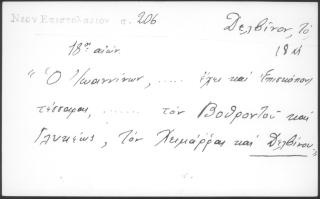 Νεον Επιστολαριον σ. 206
Δελβίνον, τό
18ος αιών
18 Μ
"Ὁ Ἰωαννίνων, ..... ἔχει καὶ Ἐπισκόπους
τέσσαρας, ...... τὸν Βοθροντοῦ καὶ
Γλυκέως, τὸν Χειμάρρας καὶ Δελβίνου"